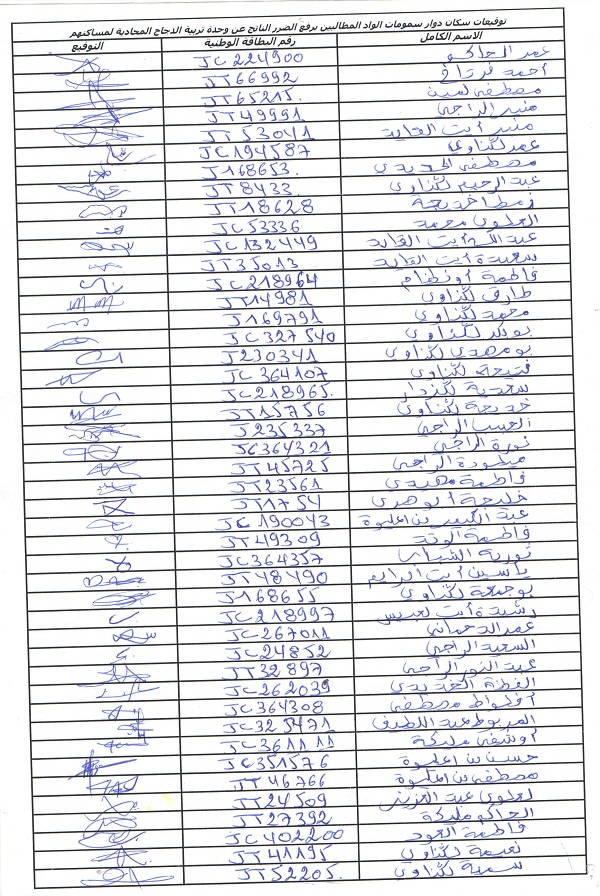 توقيعات سكان دوار سمومات الواد المطالبين برفع الضرر الناتج عن وحدة تربية الدجاج المحادية لمساكنهم
الاسم الكامل رقم البطاقة الوطنية التوقيع
عمر الحاكو JC 224900
أحمد JT66992
مصطفى لمين JT65215.
منير الراجي JT49991
منير أيت القايد JT53041
عمر لكناوي JC194587
مصطفى الحديدي J168653.
عبد الرحيم لكناوي JT8433
خديجة JT18628
العلوي محمد JC53336
عبد الله أيت القايد JC132449
سعيدة أيت القايد JT35013
فاطمة JC218964
طارق لكناوي JT14981
محمد لكناوي J169791
بوبكر لكناوي JC327540
بومهدي لكناوي J230341
فتيحة لكناوي JC364107
سعدية JC218965.
خديجة لكناوي JT15756
الحسن الراجي J235337
نورة الراجي JC364321
ميلودة الراجي JT45725
فاطمة مهيدي JT23561
خليجة ابو هدى JT1754
عبد الكبير بن اعليوة JC190043
فاطمة JT49309
نورية JC364357
ياسين أيت JT48490
بوجمعة لكناوي J168655
رشيدة أيت لعديس JC218997
عمر الدحماني JC267011
السعيد الراجي JC24852
عبد النور الراجي JT32897
JC262039
مصطفى JC364308
المربوط عبد اللطيف JC325471
مليكة JC361111
حسن بن اعليوة JC351576
مصطفى بن اعليوة JT46766
لعلوي عبد العزيز JT24509
الحاكم مليكة JT27392
فاطمة العود JC402200
نعيمة لكناوي JT41195
سمية لكناوي JT52205.